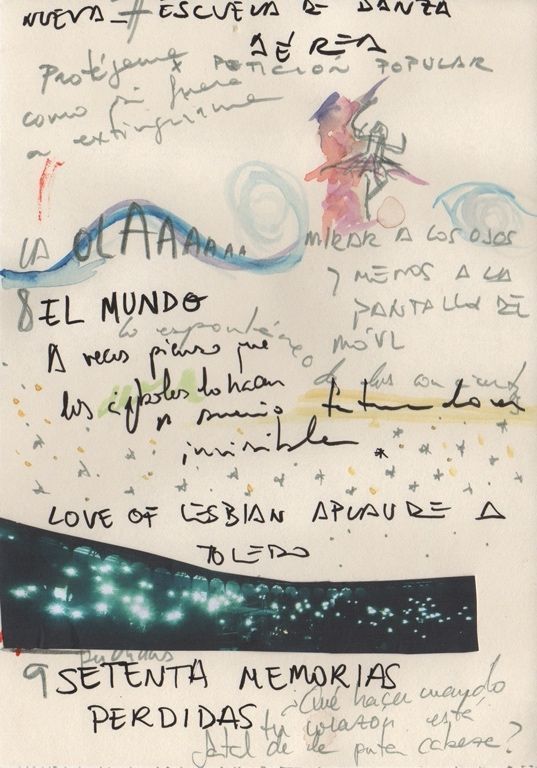 NUEVA 7 ESCUELA DE DANZA
AÉREA
Protégeme x PETICIÓN POPULAR
como si fuera
a extinguirme
LA OLAAAAAAA
MIRAR A LOS OJOS
Y MENOS A LA
PANTALLA DEL
MÓVIL
8 EL MUNDO
A veces pienso que
los árboles lo hacen
invisible
LOVE OF LESBIAN APLAUDE A
TOLEDO
9 SETENTA MEMORIAS
PERDIDAS
¿Qué hacer cuando
tu corazón está
fatal de la puta cabeza?